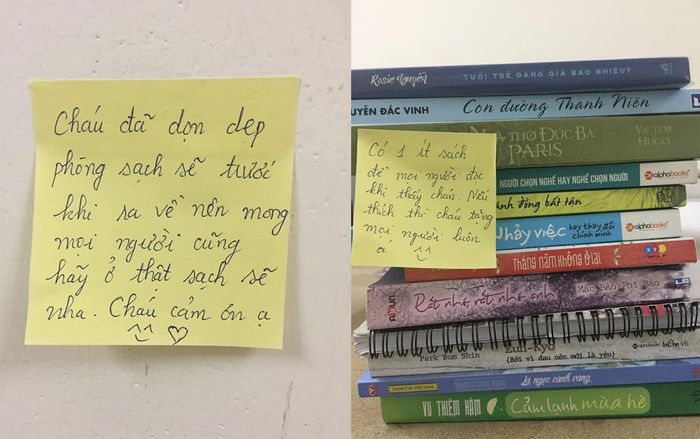 Cháu đã dọn dẹp
phòng sạch sẽ trước
khi ra về nên mong
mọi người cũng
hãy ở thật sạch sẽ
nha. Cháu cảm ơn ạ
^^ ♡
Có 1 ít sách
để mọi người đọc
khi thấy chán. Nếu
thích thì cháu tặng
mọi người luôn
ạ ^^
Rosie Nguyễn TUỔI TRẺ ĐÁNG GIÁ BAO NHIÊU?
UYỄN ĐẮC VINH Con đường Thanh Niên
THỜ ĐỨC BÀ
PARIS VICTOR
HUGO
NGƯỜI CHỌN NGHỀ HAY NGHỀ CHỌN NGƯỜI alphabooks
ánh đồng bất tận
Nhảy việc hay thay đổi
chính mình alphabooks
Tháng năm không ở lại
AMUN Rất nhớ, rất nhớ anh Mão Bảo Phi Bảo
Park Bum Shin Eun-kyo
(Bởi vì đau nên mới là yêu) alphabooks
Lá ngọc cành vàng
VU THIÊM HÂM Cảm lạnh mùa hè